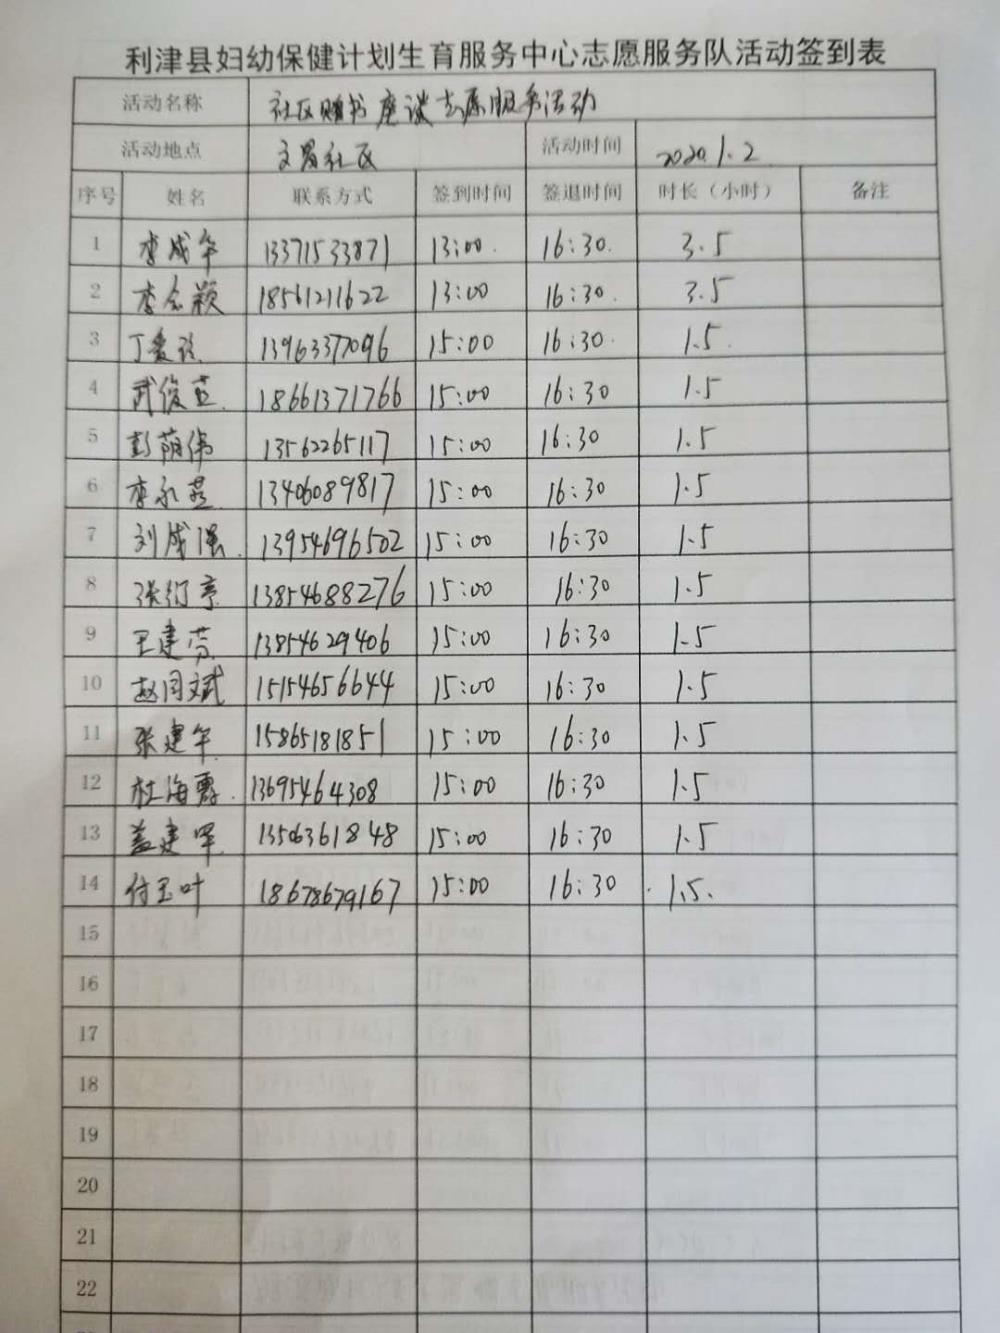 利津县妇幼保健计划生育服务中心志愿服务队活动签到表
活动名称 社区赠书座谈志愿服务活动
活动地点 文昌社区 活动时间 2020.1.2
序号 姓名 联系方式 签到时间 签退时间 时长（小时） 备注
1 李成年 13371533871 13:00 16:30 3.5
2 李念颖 18561211622 13:00 16:30 3.5
3 丁爱 13963377096 15:00 16:30 1.5
4 武俊英 18661371766 15:00 16:30 1.5
5 彭萌伟 13562265117 15:00 16:30 1.5
6 李永燕 13406089817 15:00 16:30 1.5
7 刘成强 13954696502 15:00 16:30 1.5
8 张红亭 13854688276 15:00 16:30 1.5
9 王建芬 13854629406 15:00 16:30 1.5
10 赵同斌 15154656644 15:00 16:30 1.5
11 张建年 15865181851 15:00 16:30 1.5
12 杜海霞 13695464308 15:00 16:30 1.5
13 盖建军 1356361848 15:00 16:30 1.5
14 付玉叶 18678679167 15:00 16:30 1.5
15
16
17
18
19
20
21
22